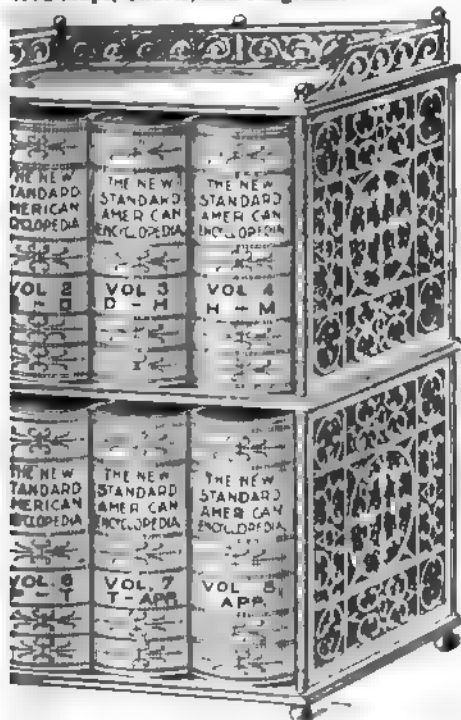 THE NEW
TANDARD
MERICAN
CLOPEDIA
VOL 2
THE NEW
STANDARD
AMERICAN
ENCYCLOPEDIA
VOL 3
D – H
THE NEW
STANDARD
AMERICAN
ENCYCLOPEDIA
VOL 4
H – M
THE NEW
TANDARD
MERICAN
CLOPEDIA
VOL. 6
P – T
THE NEW
STANDARD
AMERICAN
ENCYCLOPEDIA
VOL. 7
T – APP.
THE NEW
STANDARD
AMERICAN
ENCYCLOPEDIA
VOL 8
APP.